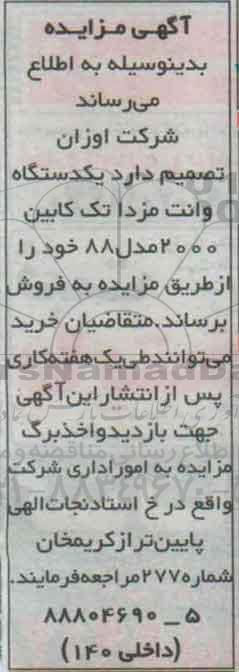 آگهی مزایده
بدینوسیله به اطلاع
می‌رساند
شرکت اوزان
تصمیم دارد یکدستگاه
وانت مزدا تک کابین
۲۰۰۰مدل۸۸ خود را
ازطریق مزایده به فروش
برساند.متقاضیان خرید
می‌توانندطی‌یک‌هفته‌کاری
پس ازانتشاراین‌آگهی
جهت بازدیدواخذبرگ
مزایده به اموراداری شرکت
واقع در خ استادنجات‌الهی
پایین‌ترازکریمخان
شماره۲۷۷مراجعه‌فرمایند.
۵ _ ۸۸۸۰۴۶۹۰
(داخلی ۱۴۰)